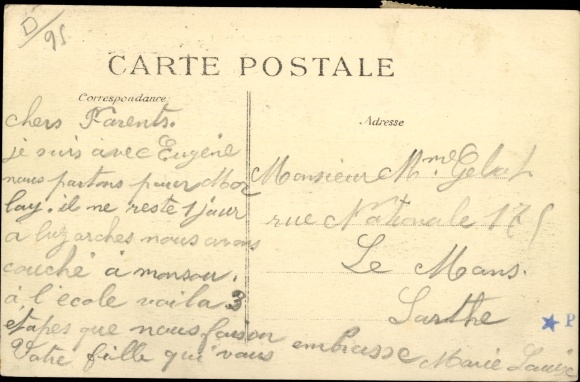 D/95
CARTE POSTALE
Correspondance
Adresse
chers Parents.
je suis avec Eugène
nous partons pour Mor
lay. il ne reste 1 jour
a luzarches nous avons
couché à monsou.
à l'école voila 3
etapes que nous faison
Votre fille qui vous embrasse Marie Louise
Monsieur Mme
rue Nationale 175
Le Mans.
Sarthe
P